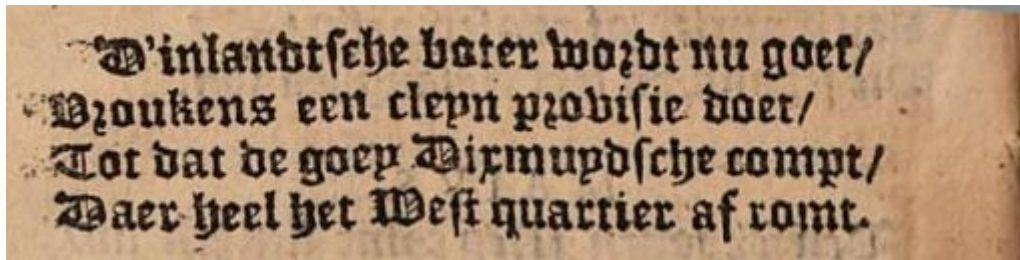 D'inlandtsche boter wordt nu goet/
Vroukens een cleyn provisie doet/
Tot dat de goey Dixmuydsche compt/
Daer heel het West quartier af romt.